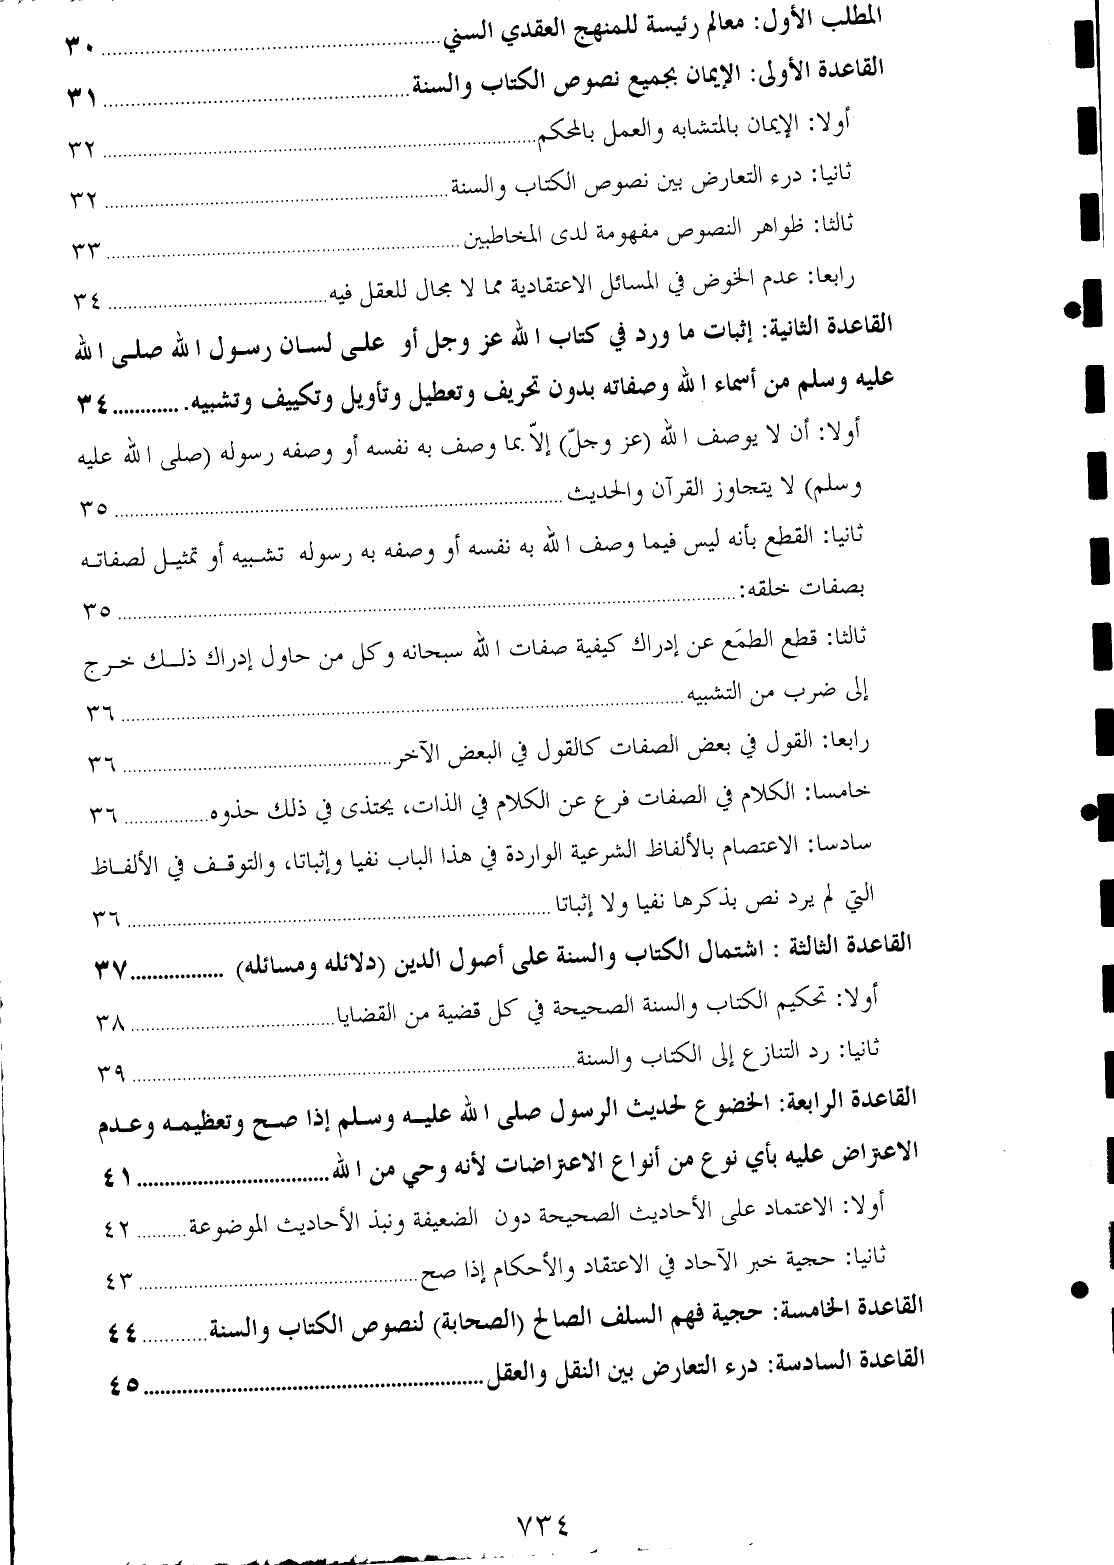 المطلب الأول: معالم رئيسة للمنهج العقدي السني ٣٠
القاعدة الأولى: الإيمان بجميع نصوص الكتاب والسنة ٣١
أولا: الإيمان بالمتشابه والعمل بالمحكم ٣٢
ثانيا: درء التعارض بين نصوص الكتاب والسنة ٣٢
ثالثا: ظواهر النصوص مفهومة لدى المخاطبين ٣٣
رابعا: عدم الخوض في المسائل الاعتقادية مما لا مجال للعقل فيه ٣٤
القاعدة الثانية: إثبات ما ورد في كتاب الله عز وجل أو على لسان رسول الله صلى الله
عليه وسلم من أسماء الله وصفاته بدون تحريف وتعطيل وتأويل وتكييف وتشبيه. ٣٤
أولا: أن لا يوصف الله (عز وجلّ) إلاّ بما وصف به نفسه أو وصفه رسوله (صلى الله عليه
وسلم) لا يتجاوز القرآن والحديث ٣٥
ثانيا: القطع بأنه ليس فيما وصف الله به نفسه أو وصفه به رسوله تشبيه أو تمثيل لصفاته
بصفات خلقه: ٣٥
ثالثا: قطع الطمَع عن إدراك كيفية صفات الله سبحانه وكل من حاول إدراك ذلك خرج
إلى ضرب من التشبيه ٣٦
رابعا: القول في بعض الصفات كالقول في البعض الآخر ٣٦
خامسا: الكلام في الصفات فرع عن الكلام في الذات، يحتذى في ذلك حذوه ٣٦
سادسا: الاعتصام بالألفاظ الشرعية الواردة في هذا الباب نفيا وإثباتا، والتوقف في الألفاظ
التي لم يرد نص بذكرها نفيا ولا إثباتا ٣٦
القاعدة الثالثة : اشتمال الكتاب والسنة على أصول الدين (دلائله ومسائله) ٣٧
أولا: تحكيم الكتاب والسنة الصحيحة في كل قضية من القضايا ٣٨
ثانيا: رد التنازع إلى الكتاب والسنة ٣٩
القاعدة الرابعة: الخضوع لحديث الرسول صلى الله عليه وسلم إذا صح وتعظيمه وعدم
الاعتراض عليه بأي نوع من أنواع الاعتراضات لأنه وحي من الله ٤١
أولا: الاعتماد على الأحاديث الصحيحة دون الضعيفة ونبذ الأحاديث الموضوعة ٤٢
ثانيا: حجية خبر الآحاد في الاعتقاد والأحكام إذا صح ٤٣
القاعدة الخامسة: حجية فهم السلف الصالح (الصحابة) لنصوص الكتاب والسنة ٤٤
القاعدة السادسة: درء التعارض بين النقل والعقل ٤٥
٧٣٤